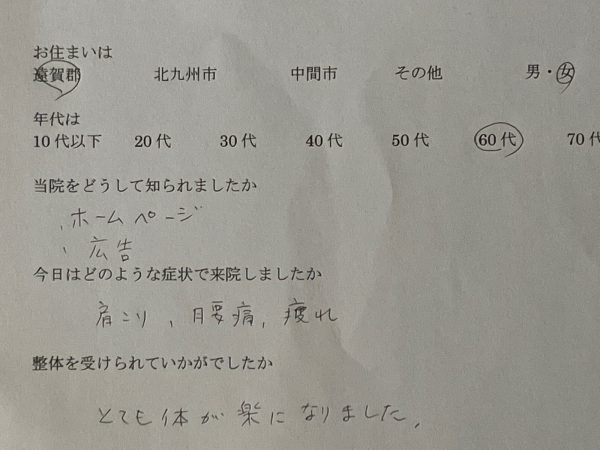 お住まいは
遠賀郡 北九州市 中間市 その他 男・女
年代は
10代以下 20代 30代 40代 50代 60代 70代
当院をどうして知られましたか
、ホームページ
、広告
今日はどのような症状で来院しましたか
肩こり、腰痛、疲れ
整体を受けられていかがでしたか
とても体が楽になりました。